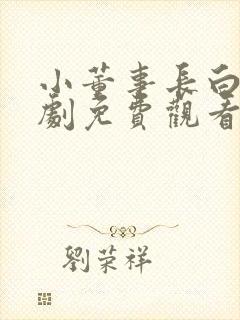 小董事長白
劇免費觀看
劉荣祥